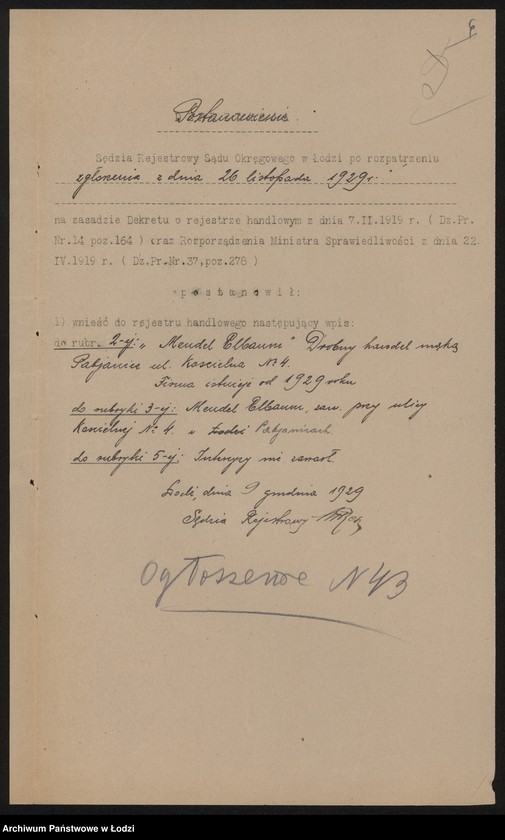 6
Postanowienie.
Sędzia Rejestrowy Sądu Okręgowego w Łodzi po rozpatrzeniu
zgłoszenia z dnia 26 listopada 1929 r.
na zasadzie Dekretu o rejestrze handlowym z dnia 7.II.1919 r. ( Dz.Pr.
Nr.14 poz.164 ) oraz Rozporządzenia Ministra Sprawiedliwości z dnia 22.
IV.1919 r. ( Dz.Pr.Nr.37,poz.278 )
p o s t a n o w i ł :
1) wnieść do rejestru handlowego następujący wpis:
do rubr. 2-ej: „Mendel Elbaum" Drobny handel mąką
Pabjanice ul. Kościelna № 4.
Firma istnieje od 1929 roku
do rubryki 3-ej: Mendel Elbaum, zam. przy ulicy
Kościelnej № 4. w Łodzi Pabjanicach.
do rubryki 5-ej: Intercyzy nie zawarł.
Łódź, dnia 9 grudnia 1929
Sędzia Rejestrowy
Ogłoszenie N 43
Archiwum Państwowe w Łodzi